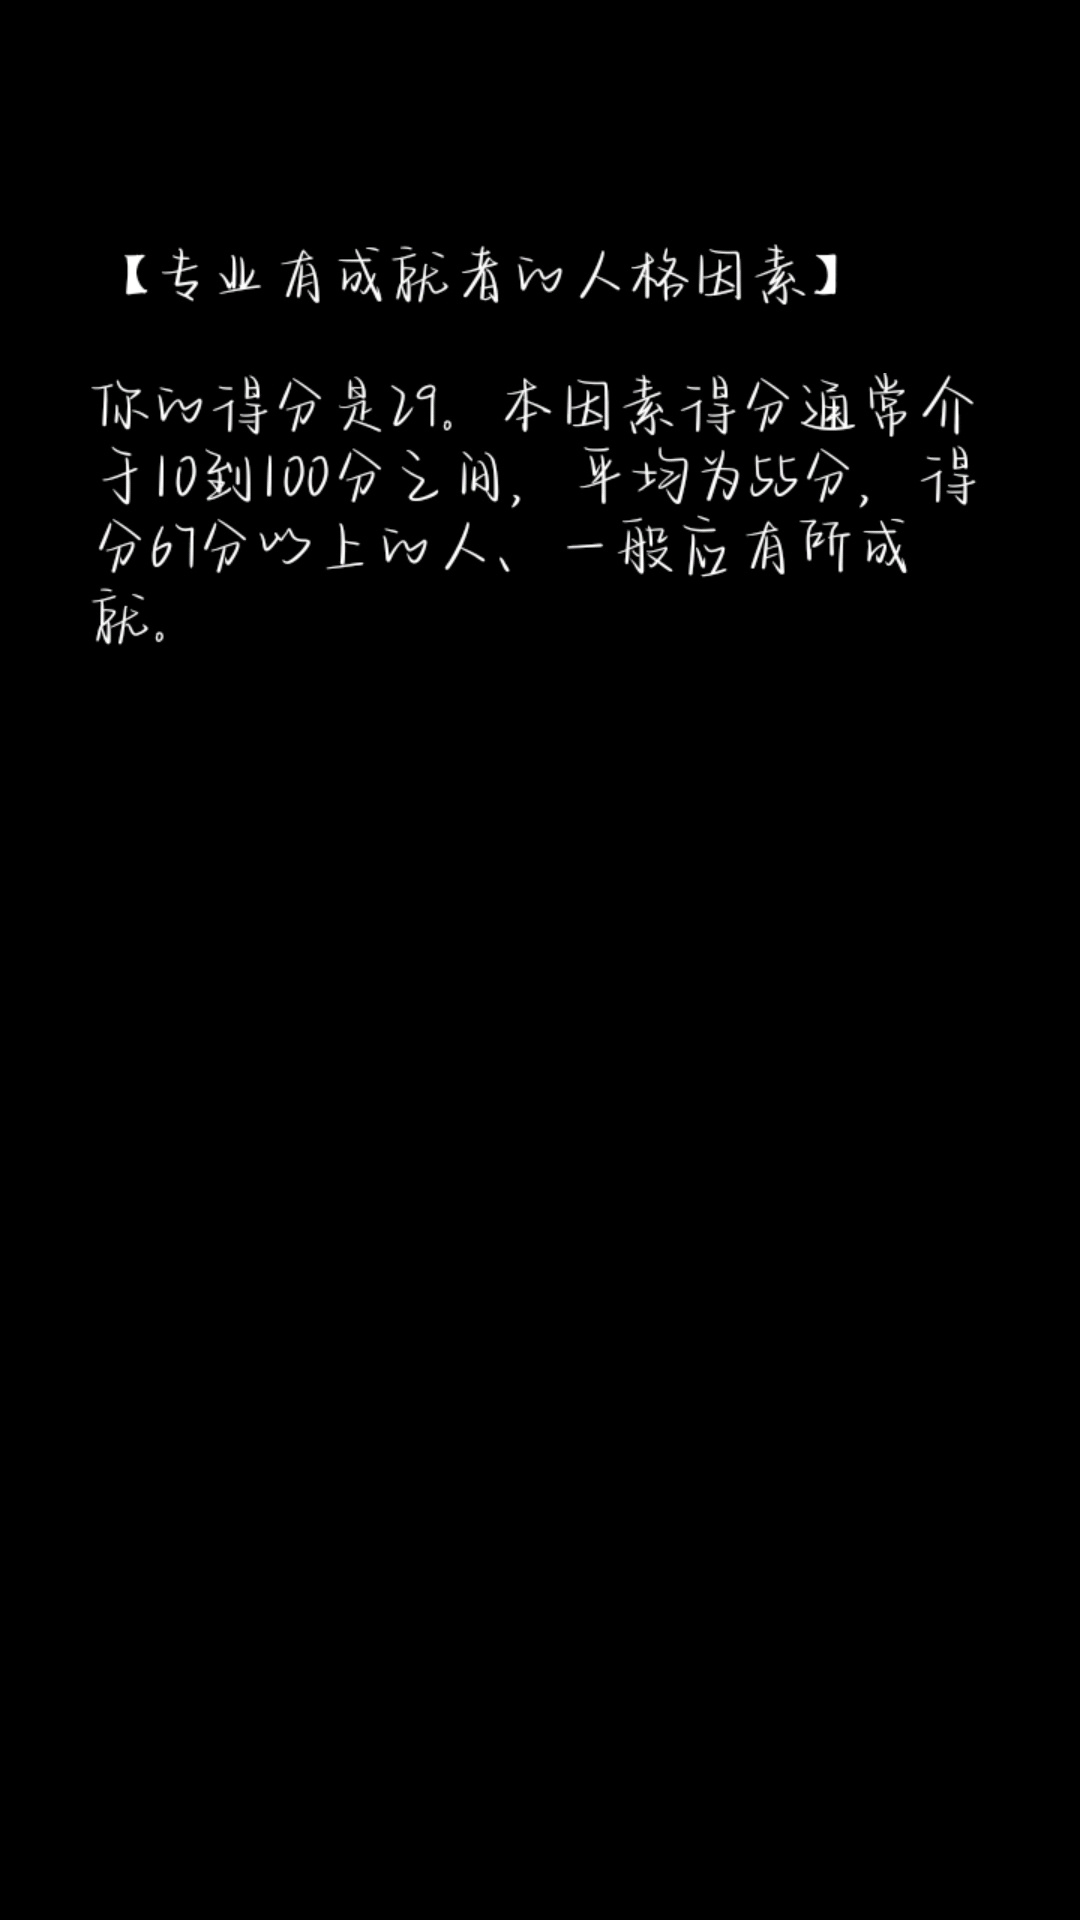 【专业有成就者的人格因素】
你的得分是29。本因素得分通常介
于10到100分之间，平均为55分，得
分67分以上的人、一般应有所成
就。